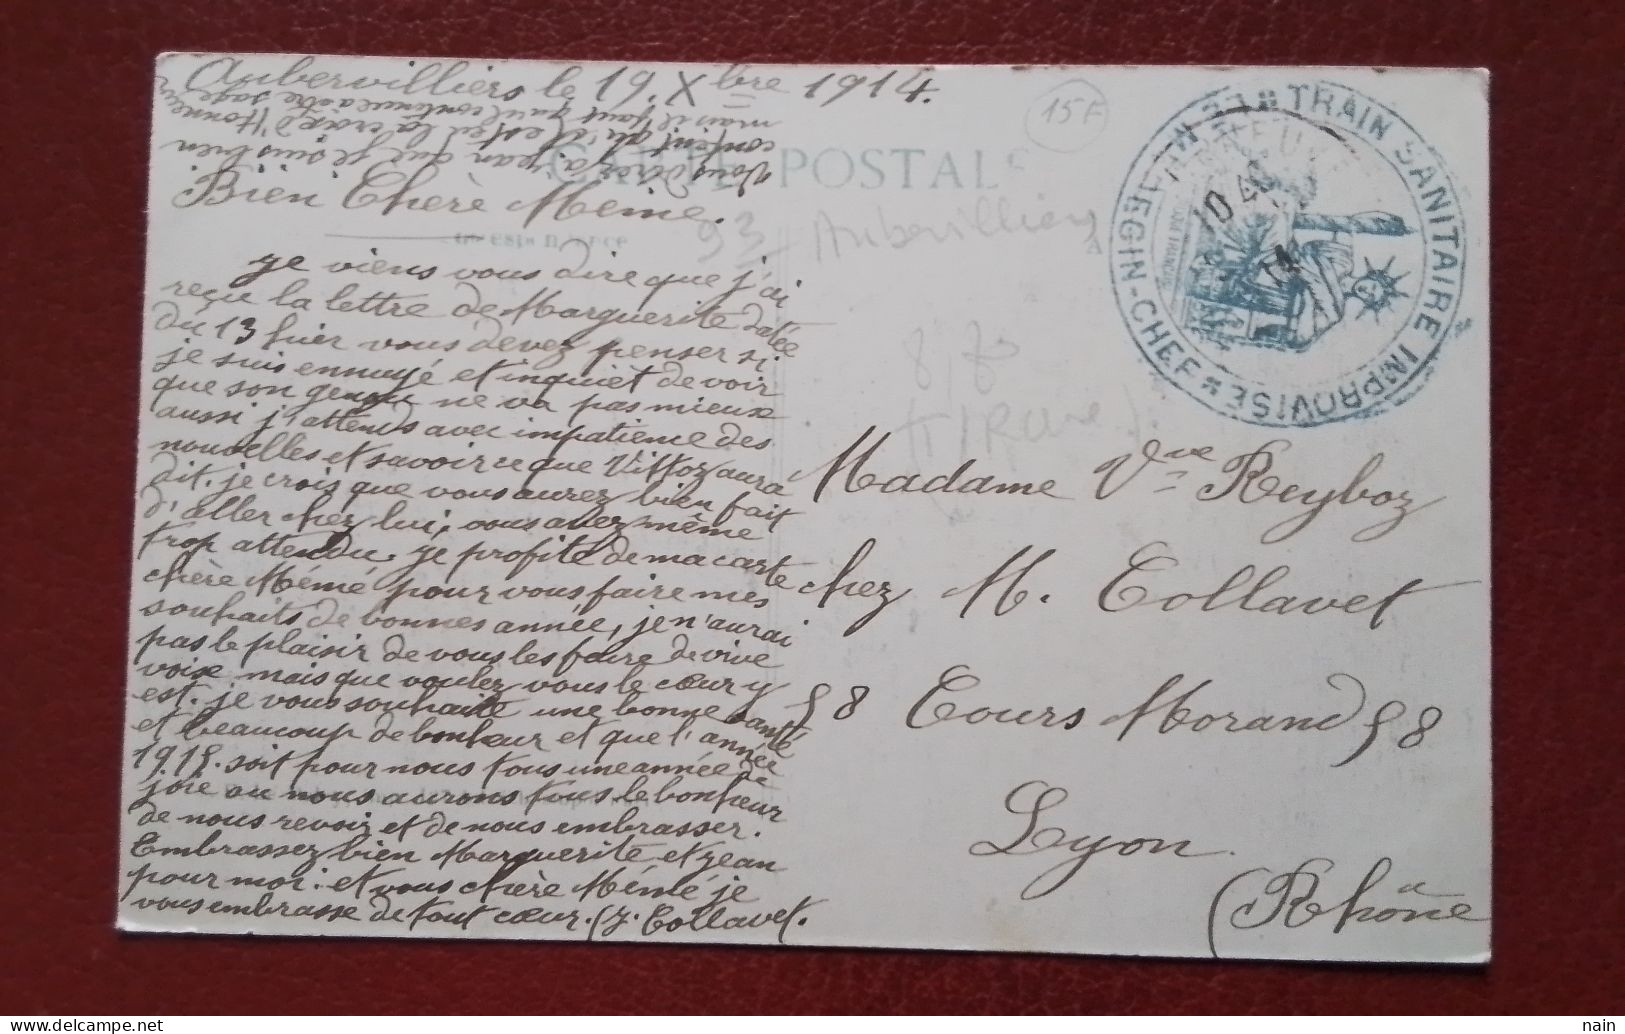 Aubervilliers le 19. Xbre 1914.
Vous direz à jean que je suis bien
content qu'il est eu la croix d'Honneur
mais il faut qu'il continue a être sage
CARTE POSTALE
Bien Chère Mémé.
je viens vous dire que j'ai
reçu la lettre de Marguerite datée
du 13 hier vous devez penser si
je suis ennuyé et inquiet de voir
que son genou ne va pas mieux
aussi j'attends avec impatience des
nouvelles et savoir ce que Vittoz aura
dit. je crois que vous aurez bien fait
d'aller chez lui, vous avez même
trop attendu. je profite de ma carte
chère Mémé pour vous faire mes
souhaits de bonnes année, je n'aurai
pas le plaisir de vous les faire de vive
voix mais que voulez vous le cœur y
est. je vous souhaite une bonne santé
et beaucoup de bonheur et que l'année
1915. soit pour nous tous une année de
joie ou nous aurons tous le bonheur
de nous revoir et de nous embrasser.
Embrassez bien Marguerite et jean
pour moi. et vous chère Mémé je
vous embrasse de tout cœur. J. Collavet.
15F
93 - Aubervilliers
TRAIN SANITAIRE IMPROVISÉ
MEDECIN-CHEF
LE
Madame Vve Reyboz
chez M. Collavet
58 Cours Morand 58
Lyon
(Rhône
nain